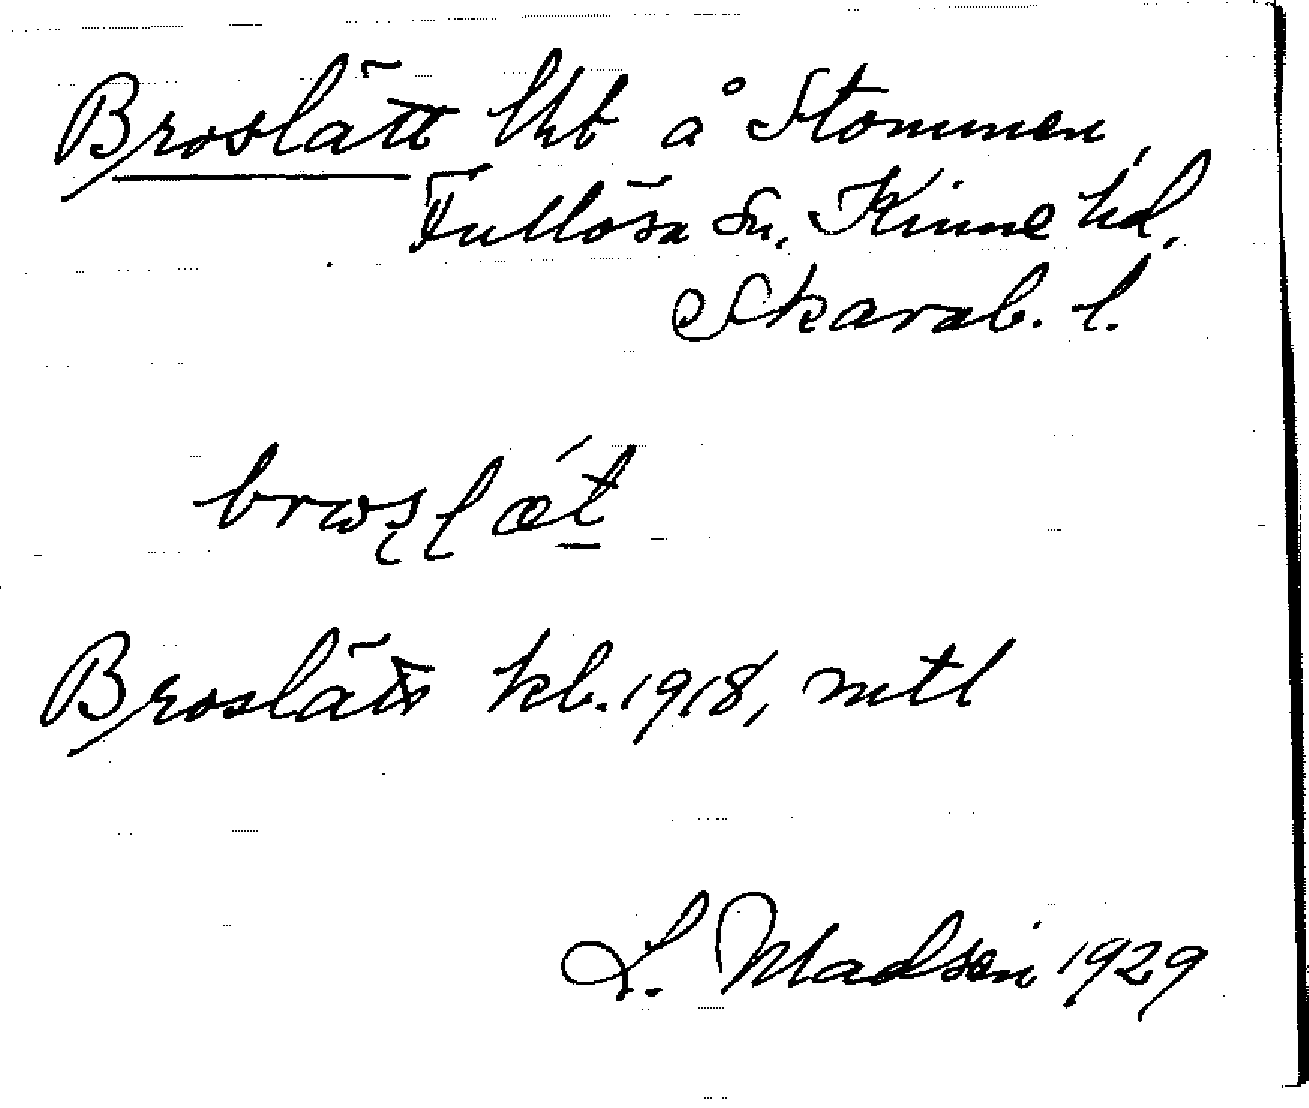 Broslätt lht å Stommen,
Fullösa sn, Kinne hd,
Skarab. l.
Broslätt kb. 1918, mtl
L. Madsén 1929